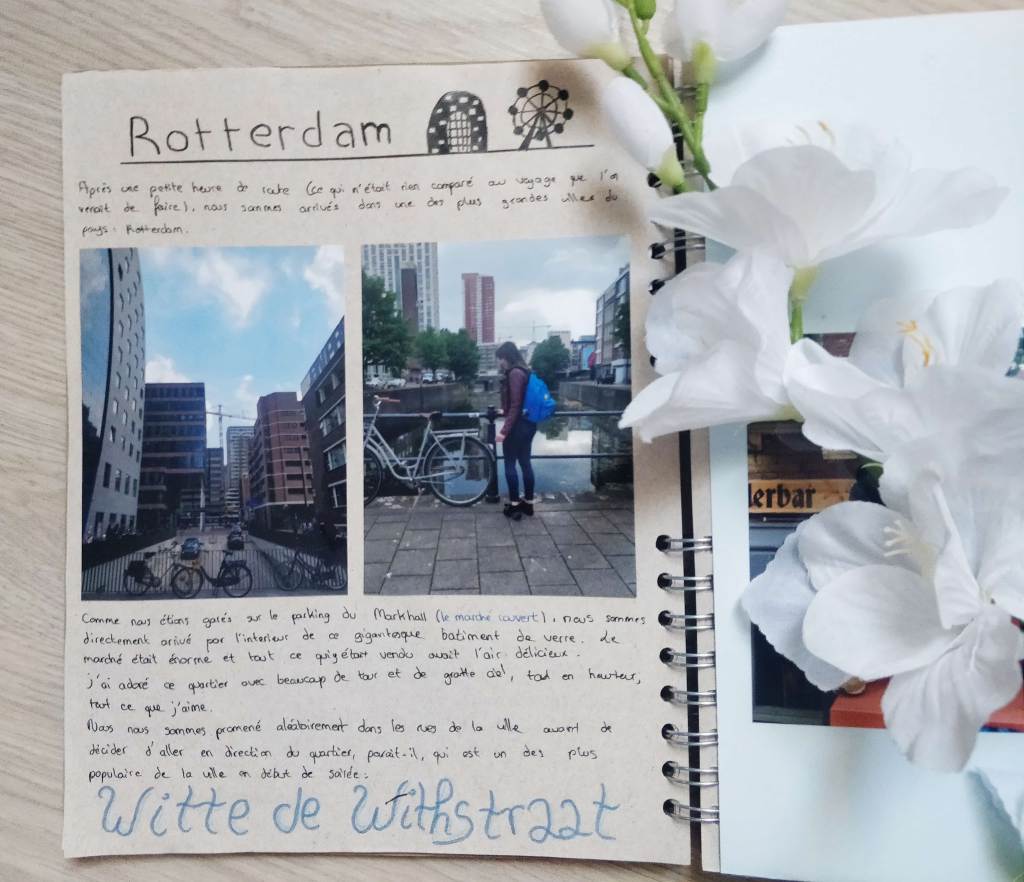 Rotterdam
Après une petite heure de route (ce qui n'était rien comparé au voyage que l'on
venait de faire), nous sommes arrivés dans une des plus grandes villes du
pays : Rotterdam.
Comme nous étions garés sur le parking du Markhall (le marché couvert), nous sommes
directement arivé par l'interieur de ce gigantesque batiment de verre. Le
marché était énorme et tout ce qui y était vendu avait l'air délicieux.
j'ai adoré ce quartier avec beaucoup de tour et de gratte ciel, tout en hauteur,
tout ce que j'aime.
Nous nous sommes promené aléatoirement dans les rues de la ville avant de
décider d'aller en direction du quartier, parait-il, qui est un des plus
populaire de la ville en début de soirée :
Witte de Withstraat
derbar